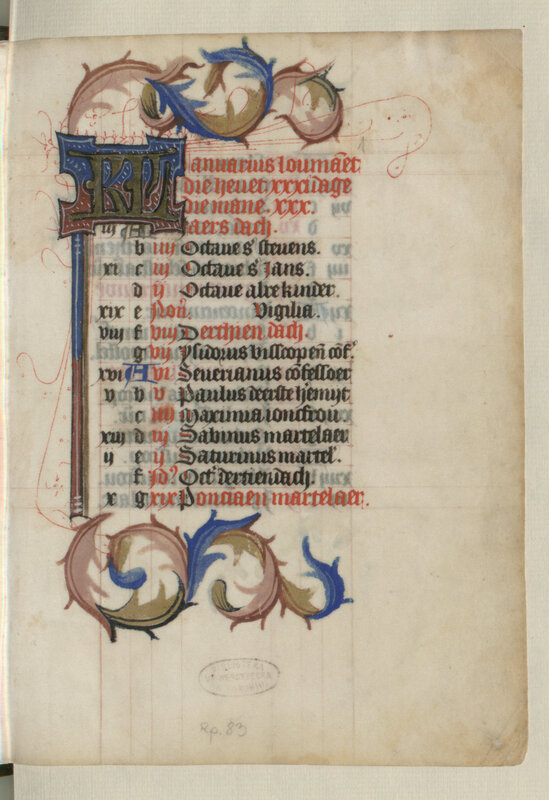 KL
Januarius loumaēt
die hevet xxxi dage
die mane. xxx.
iii A Jaers dach.
b iiii Octave sʼ stevens.
xi c iii Octave sʼ Jans.
d ii Octave alrekinder.
xix e Non̄ Vigilia.
viii f viii Derthien dach.
g vii Ysidorus bisscop en̄ cōf.
xvi A vi Severianus cōfessoer
v b v Paulus deerste h'emijt
c iiii Maximia ioncfrou
xiii d iii Sabinus martelaer
ii e ii Saturinus martel'.
f Id' Oct' dertiendach.
x g xix Ponciaen martelaer.
1
Rp. 83